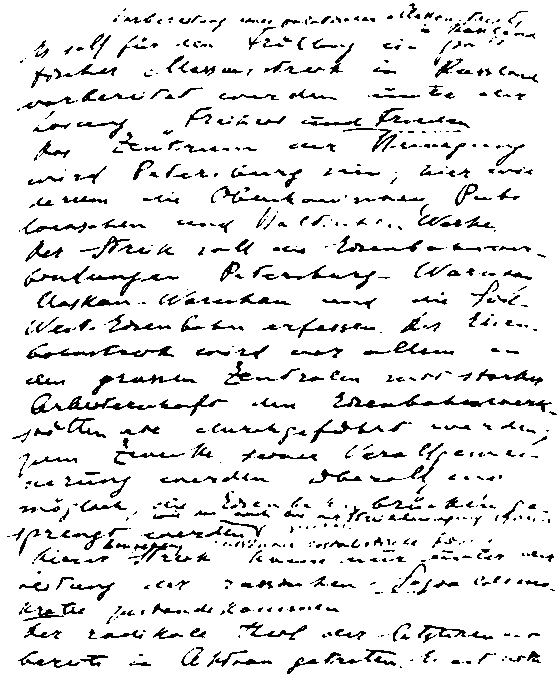 Vorbereitung eines politischen Massenstreiks
in Russland
Es soll für den Frühling ein poli-
tischer Massenstreik in Russland
vorbereitet werden unter der
Losung Freiheit und Frieden
Das Zentrum der Bewegung
wird Petersburg sein, hier wie-
derum die Obuchowschen, Puti-
lowschen und Baltischen Werke.
Der Streik soll die Eisenbahnver-
bindungen Petersburg-Warschau
Moskau-Warschau und die Süd-
West-Eisenbahn erfassen. Der Eisen-
bahnstreik wird vor allem in
den grossen Zentralen mit starker
Arbeiterschaft den Eisenbahnwerk-
stätten etc durchgeführt werden;
zum Zwecke seiner Verallgemei-
nerung werden überall wo
möglich, die Eisenbahnbrücken ge-
sprengt werden
Dieser Streik kann nur unter der
Leitung der russischen Sozialdemo-
kratie zustandekommen
Der radikale Theil der letzteren
bereits in Aktion getreten. Es ist